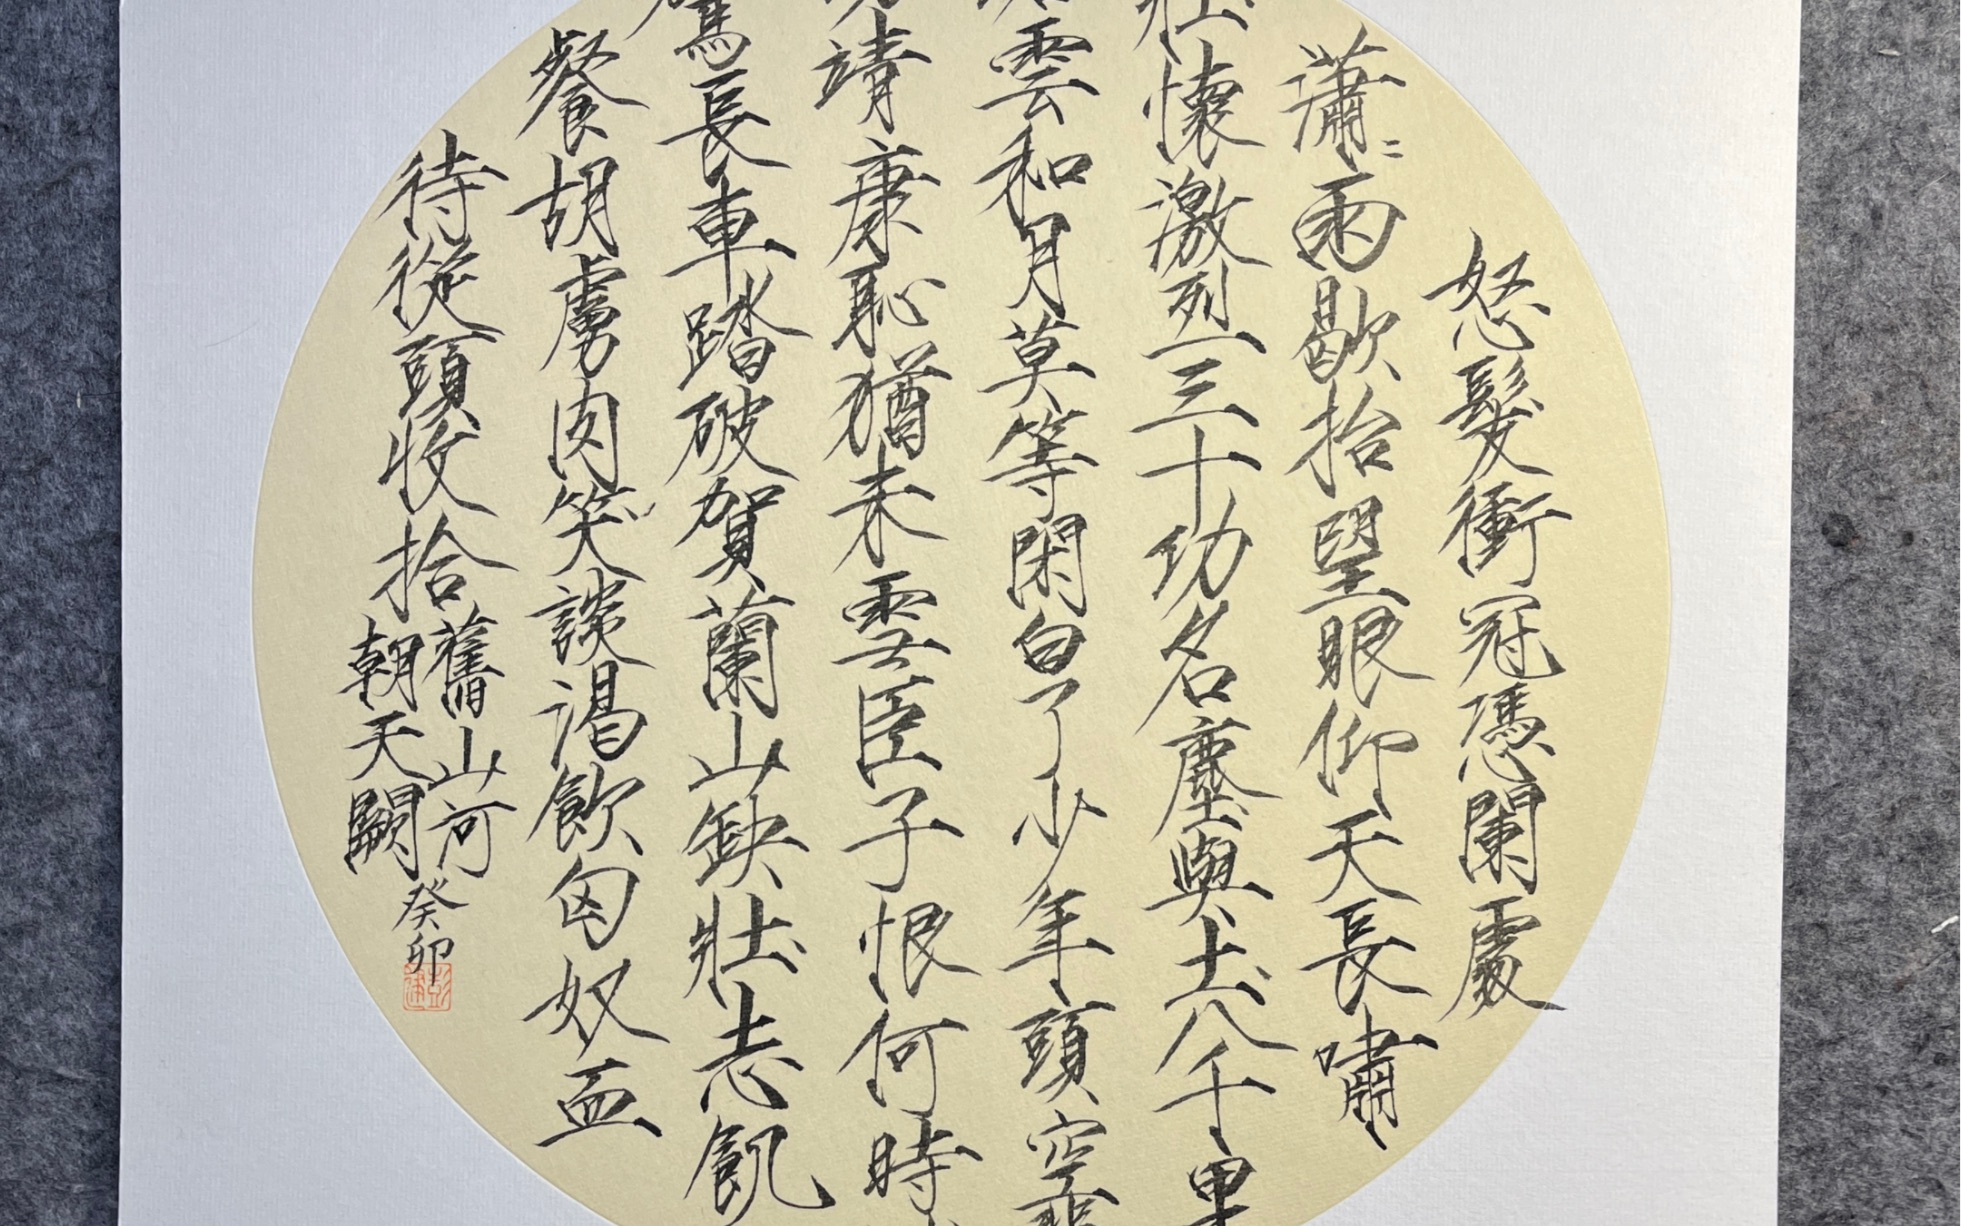 怒髮衝冠憑闌處
瀟〻雨歇抬望眼仰天長嘯
壯懷激烈三十功名塵與土八千里
雲和月莫等閑白了少年頭空悲
靖康恥猶未雪臣子恨何時
駕長車踏破賀蘭山缺壯志飢
餐胡虜肉笑談渴飲匈奴血
待從頭收拾舊山河
朝天闕
癸卯